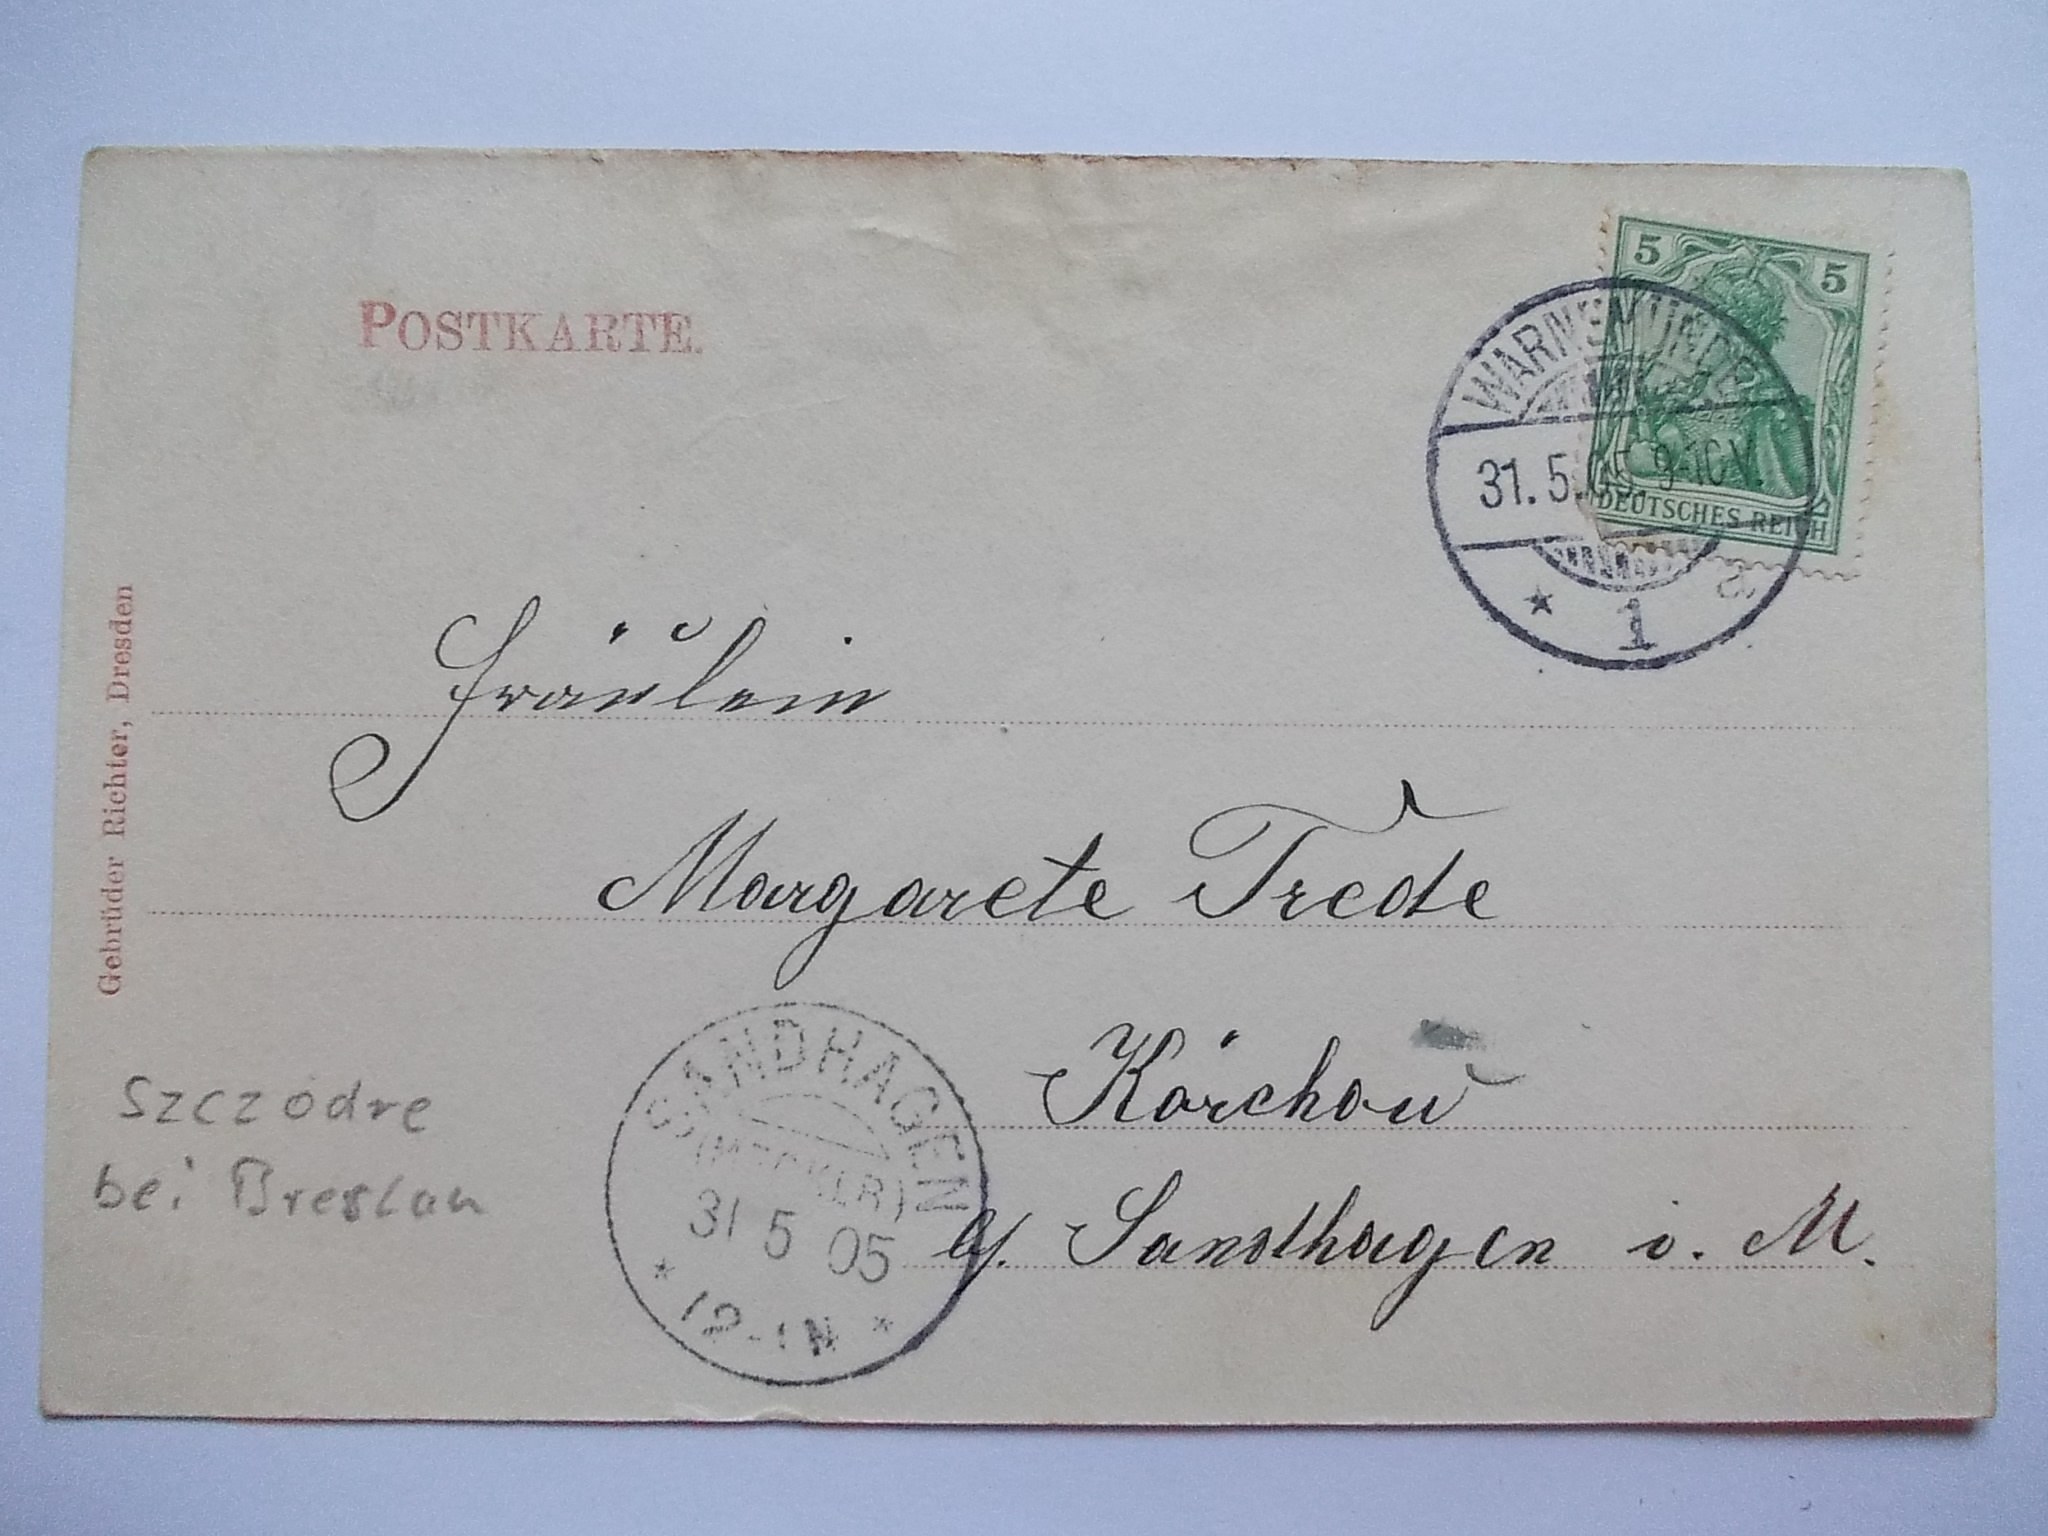 POSTKARTE.
5 5
DEUTSCHES REICH
WARNEMÜNDE
31.5.05. 9-10V.
* 1 a
Gebrüder Richter, Dresden
Fräulein
Margarete Trede
Körchow
b/. Sandhagen i. M.
SANDHAGEN
(MECKLR)
31 5 05
* 12-1N *
Szczodre
bei Breslau